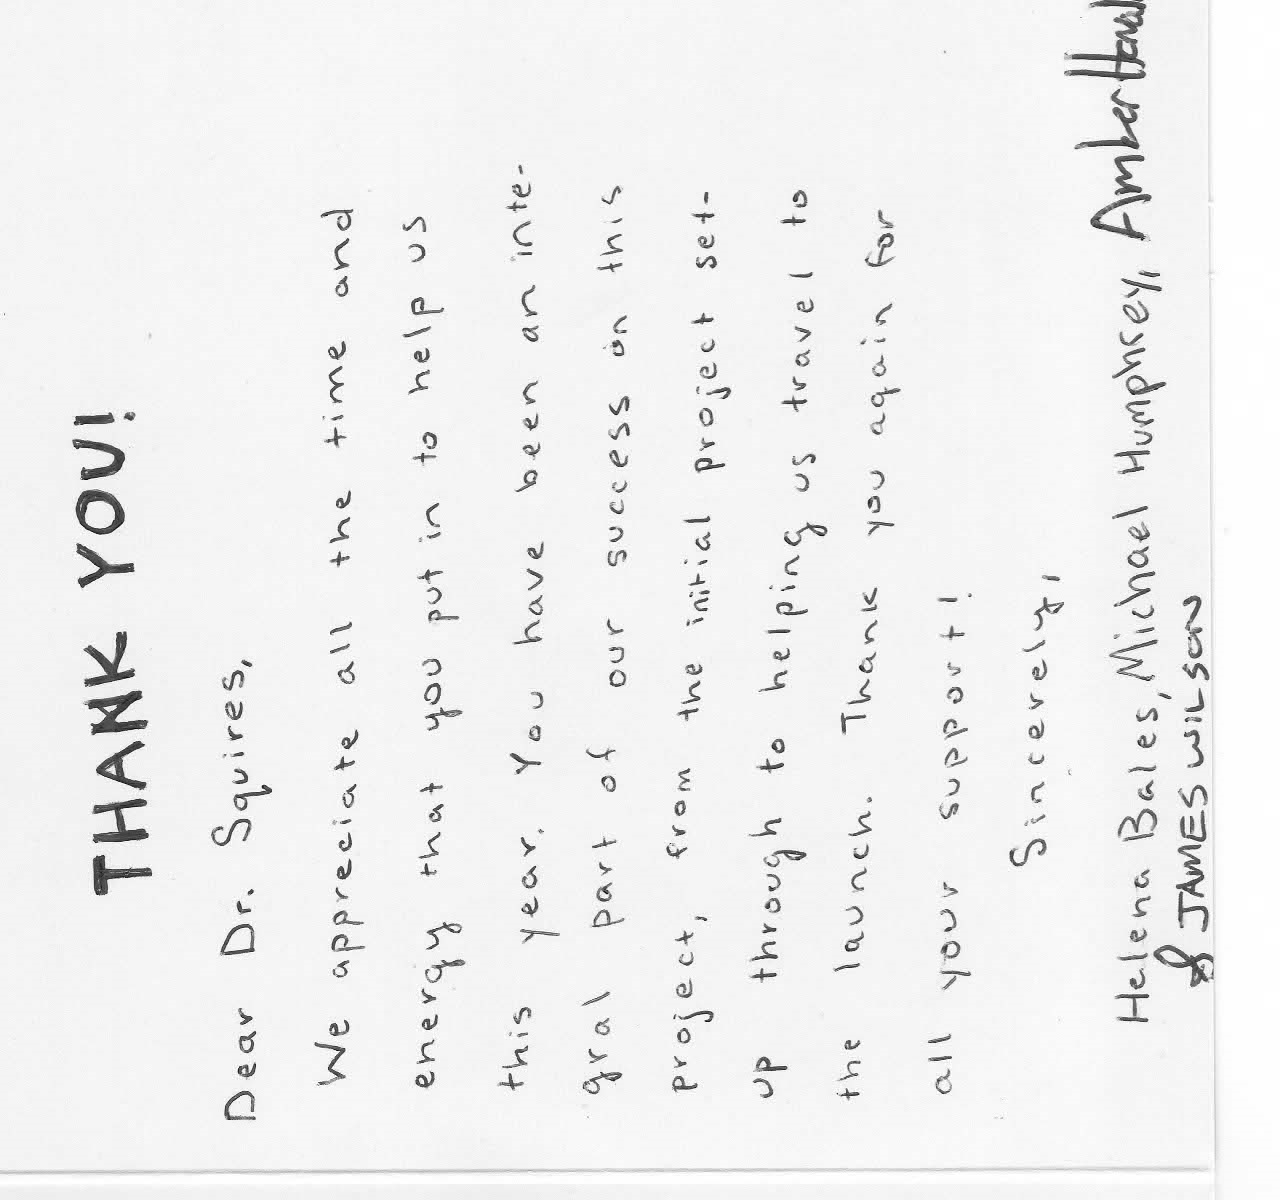 THANK YOU!
Dear Dr. Squires,
We appreciate all the time and
energy that you put in to help us
this year. You have been an inte-
gral part of our success on this
project, from the initial project set-
up through to helping us travel to
the launch. Thank you again for
all your support!
Sincerely,
Helena Bales, Michael Humphrey, Amber
& JAMES WILSON